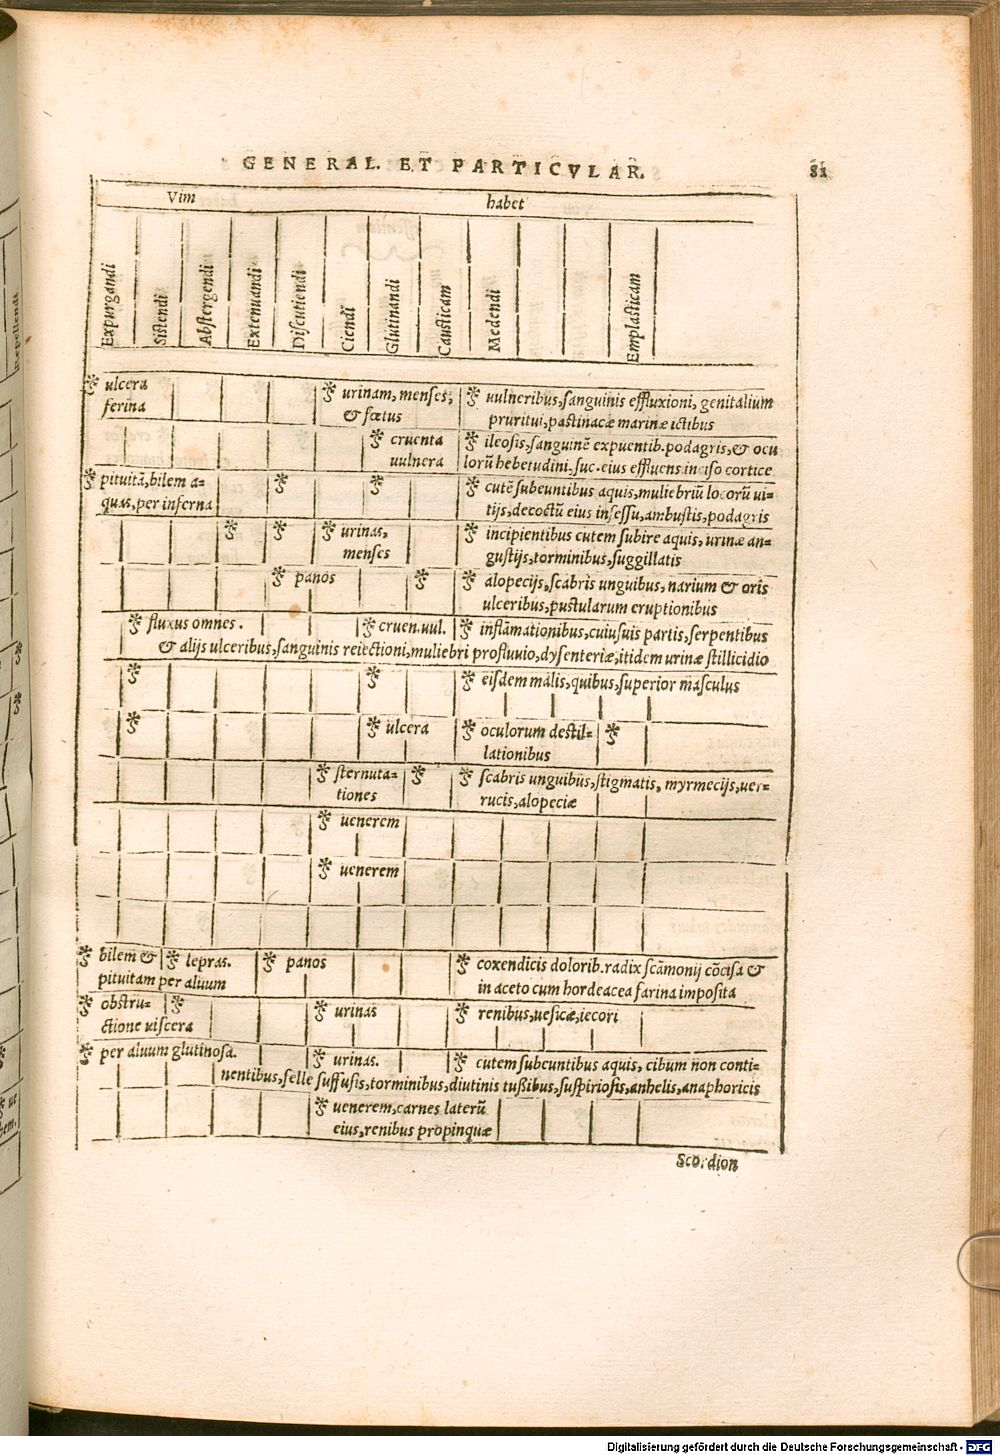 GENERAL. ET PARTICVLAR.
81
Vim habet
Expurgandi
Sistendi
Abstergendi
Extenuandi
Discutiendi
Ciendi
Glutinandi
Causticam
Medendi
Emplasticam
repellendi
ulcera urinam, menses, uulneribus, sanguinis effluxioni, genitalium
ferina & fœtus pruritui, pastinacæ marinæ ictibus
cruenta ileosis, sanguinē expuentib. podagris, & ocu
uulnera lorū hebetudini, suc. eius effluens inciso cortice
pituitā, bilem a= cutē subeuntibus aquis, muliebriū locorū ui=
quas, per inferna tijs, decoctū eius insessu, ambustis, podagris
urinas, incipientibus cutem subire aquis, urinæ an=
menses gustijs, torminibus, suggillatis
panos alopecijs, scabris unguibus, narium & oris
ulceribus, pustularum eruptionibus
fluxus omnes. cruen. uul. inflāmationibus, cuiusuis partis, serpentibus
& alijs ulceribus, sanguinis reiectioni, muliebri profluuio, dysenteriæ, itidem urinæ stillicidio
eisdem malis, quibus, superior masculus
ulcera oculorum destil=
lationibus
sternuta= scabris unguibus, stigmatis, myrmecijs, uer=
tiones rucis, alopeciæ
uenerem
uenerem
bilem & lepras. panos coxendicis dolorib. radix scāmonij cōcisa &
pituitam per aluum in aceto cum hordeacea farina imposita
obstru= urinas renibus, uesicæ, iecori
ctione uiscera
per aluum glutinosa. urinas. cutem subeuntibus aquis, cibum non conti=
nentibus, felle suffusis, torminibus, diutinis tußibus, suspiriosis, anhelis, anaphoricis
uenerem, carnes laterū
eius, renibus propinquæ
Scordion
Digitalisierung gefördert durch die Deutsche Forschungsgemeinschaft - DFG